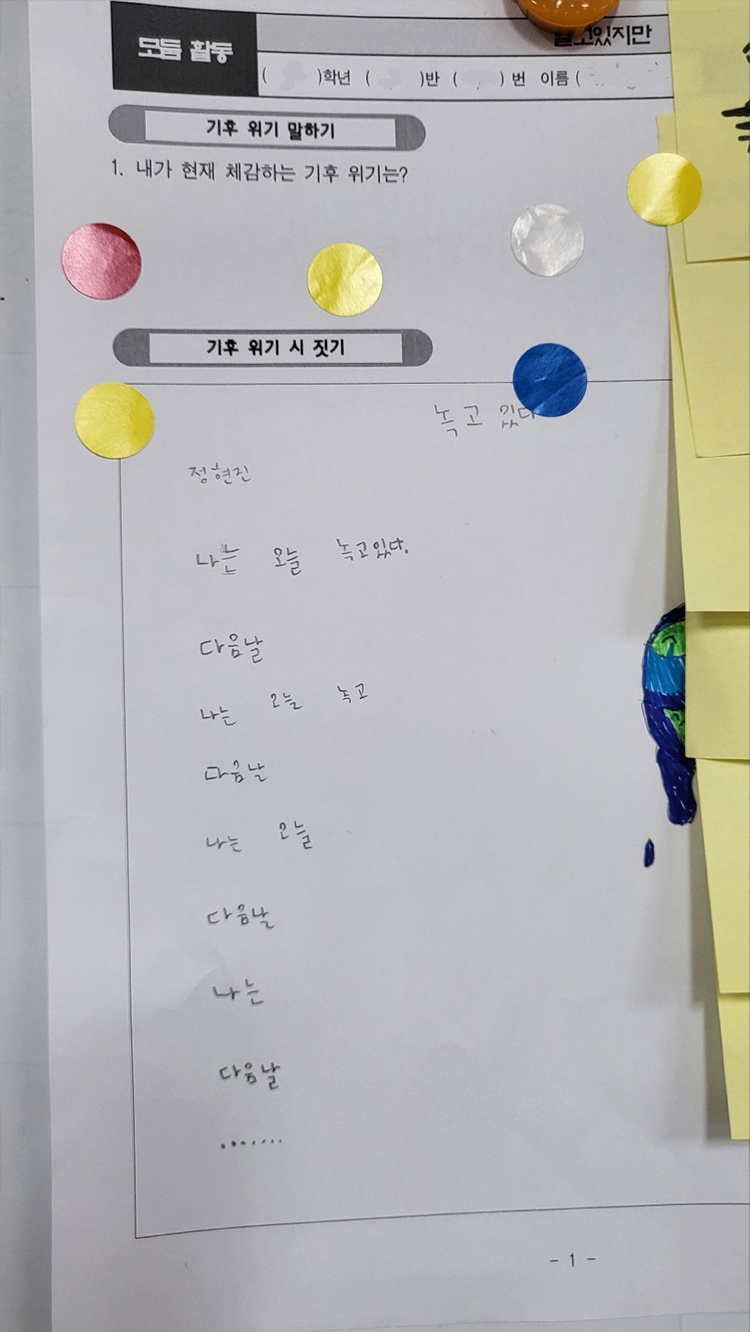 모둠 활동
알고있지만
( )학년 ( )반 ( ) 번 이름 (
기후 위기 말하기
1. 내가 현재 체감하는 기후 위기는?
기후 위기 시 짓기
녹고 있다
정현진
나는 오늘 녹고있다.
다음날
나는 오늘 녹고
다음날
나는 오늘
다음날
나는
다음날
........
- 1 -